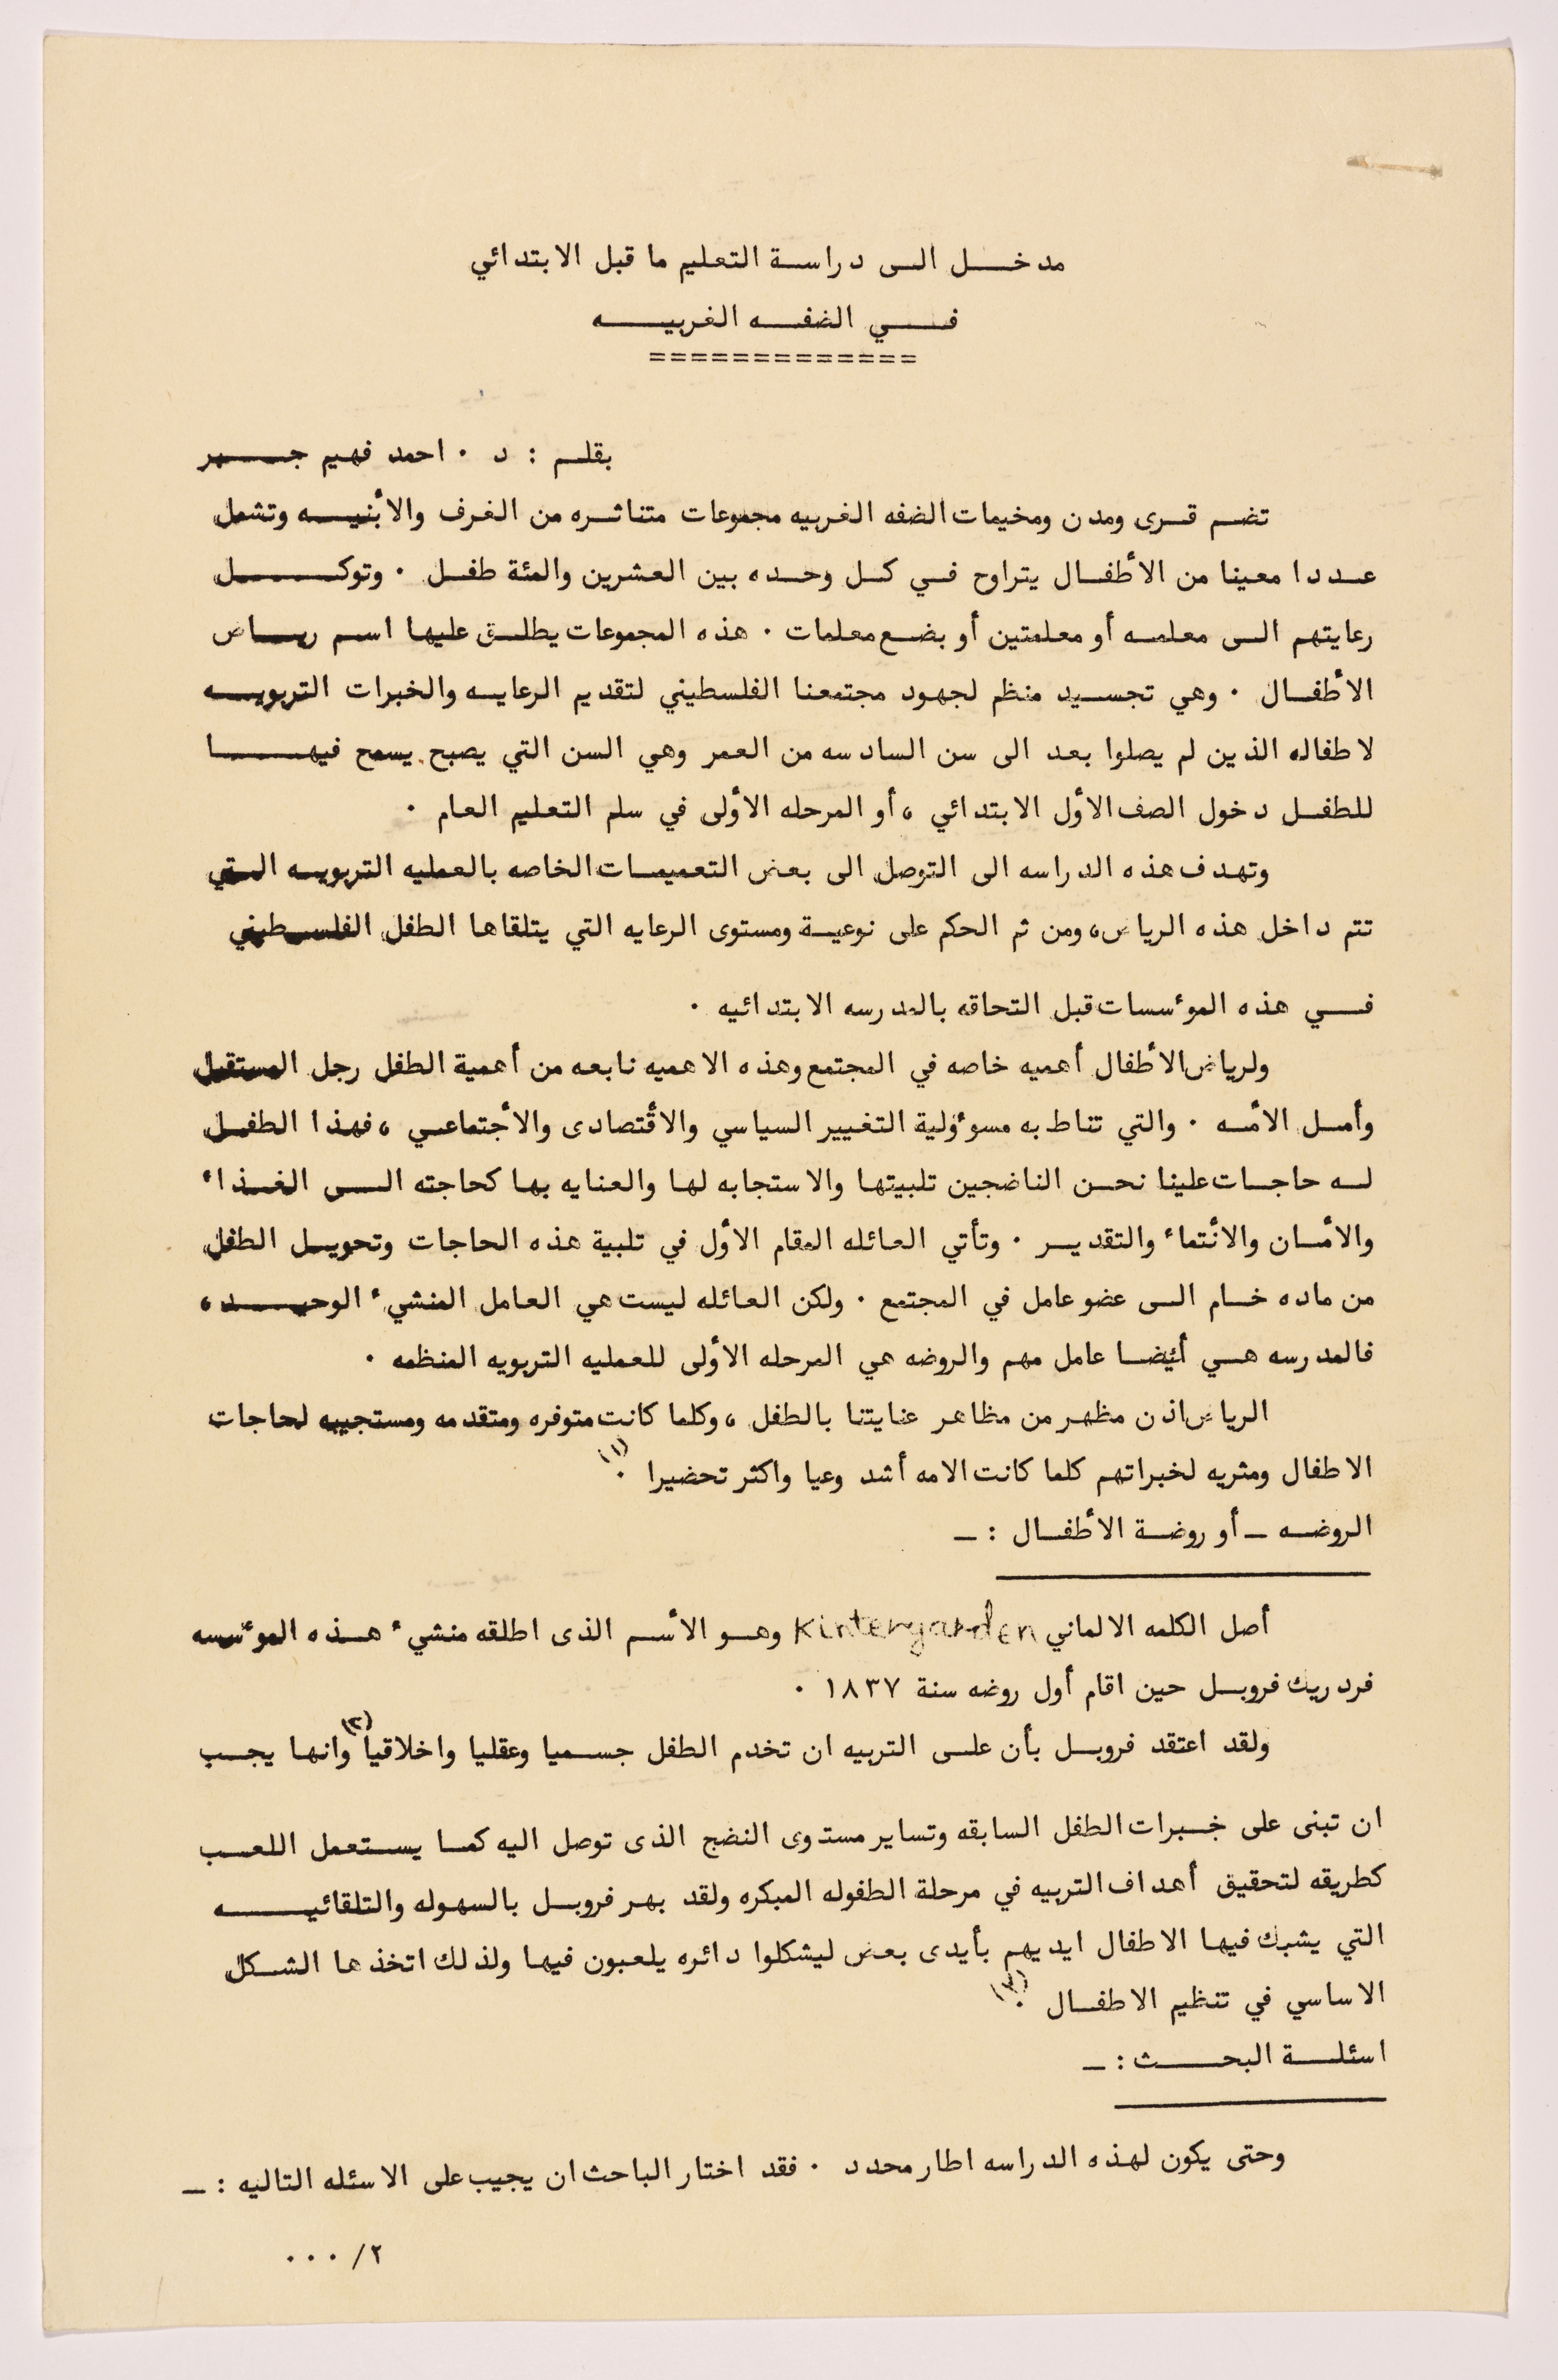 مدخل الى دراسة التعليم ما قبل الابتدائي
في الضفه الغربيه
=============
بقلم : د . احمد فهيم جبر
تضم قرى ومدن ومخيمات الضفه الغربيه مجموعات متناثره من الغرف والأبنيه وتشمل
عددا معينا من الأطفال يتراوح في كل وحده بين العشرين والمئة طفل . وتوكل
رعايتهم الى معلمه أو معلمتين أو بضع معلمات . هذه المجموعات يطلق عليها اسم رياض
الأطفال . وهي تجسيد منظم لجهود مجتمعنا الفلسطيني لتقديم الرعايه والخبرات التربويه
لاطفاله الذين لم يصلوا بعد الى سن السادسه من العمر وهي السن التي يصبح يسمح فيها
للطفل دخول الصف الأول الابتدائي ، أو المرحله الأولى في سلم التعليم العام .
وتهدف هذه الدراسه الى التوصل الى بعض التعميمات الخاصه بالعمليه التربويه التي
تتم داخل هذه الرياض، ومن ثم الحكم على نوعية ومستوى الرعايه التي يتلقاها الطفل الفلسطيني
في هذه الموءسسات قبل التحاقه بالمدرسه الابتدائيه .
ولرياض الأطفال أهميه خاصه في المجتمع وهذه الاهميه نابعه من أهمية الطفل رجل المستقبل
وأمل الأمه . والتي تناط به مسوءولية التغيير السياسي والأقتصادى والأجتماعي ، فهذا الطفل
له حاجات علينا نحن الناضجين تلبيتها والاستجابه لها والعنايه بها كحاجته الى الغذاء
والأمان والأنتماء والتقدير . وتأتي العائله المقام الأول في تلبية هذه الحاجات وتحويل الطفل
من ماده خام الى عضو عامل في المجتمع . ولكن العائله ليست هي العامل المنشيء الوحيد ،
فالمدرسه هي أيضا عامل مهم والروضه هي المرحله الأولى للعمليه التربويه المنظمه .
الرياض اذن مظهر من مظاهر عنايتنا بالطفل ، وكلما كانت متوفره ومتقدمه ومستجيبه لحاجات
الاطفال ومثريه لخبراتهم كلما كانت الامه أشد وعيا واكثر تحضيرا (١) .
الروضه ـ أو روضة الأطفال : ـ
أصل الكلمه الالماني Kintergarden وهو الأسم الذى اطلقه منشيء هذه الموءسسه
فردريك فروبل حين اقام أول روضه سنة ١٨٣٧ .
ولقد اعتقد فروبل بأن على التربيه ان تخدم الطفل جسميا وعقليا واخلاقيا (٢) وانها يجب
ان تبنى على خبرات الطفل السابقه وتساير مستوى النضج الذى توصل اليه كما يستعمل اللعب
كطريقه لتحقيق أهداف التربيه في مرحلة الطفوله المبكره ولقد بهر فروبل بالسهوله والتلقائيه
التي يشبك فيها الاطفال ايديهم بأيدى بعض ليشكلوا دائره يلعبون فيها ولذلك اتخذها الشكل
الاساسي في تنظيم الاطفال (٣) .
اسئلة البحث : ـ
وحتى يكون لهذه الدراسه اطار محدد . فقد اختار الباحث ان يجيب على الاسئله التاليه : ـ
٢/ ...